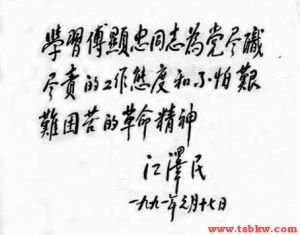 學習傅顯忠同志為党尽職
尽責的工作態度和不怕艱
難困苦的革命精神
江澤民
一九九一年元月十七日
www.tsbkw.com